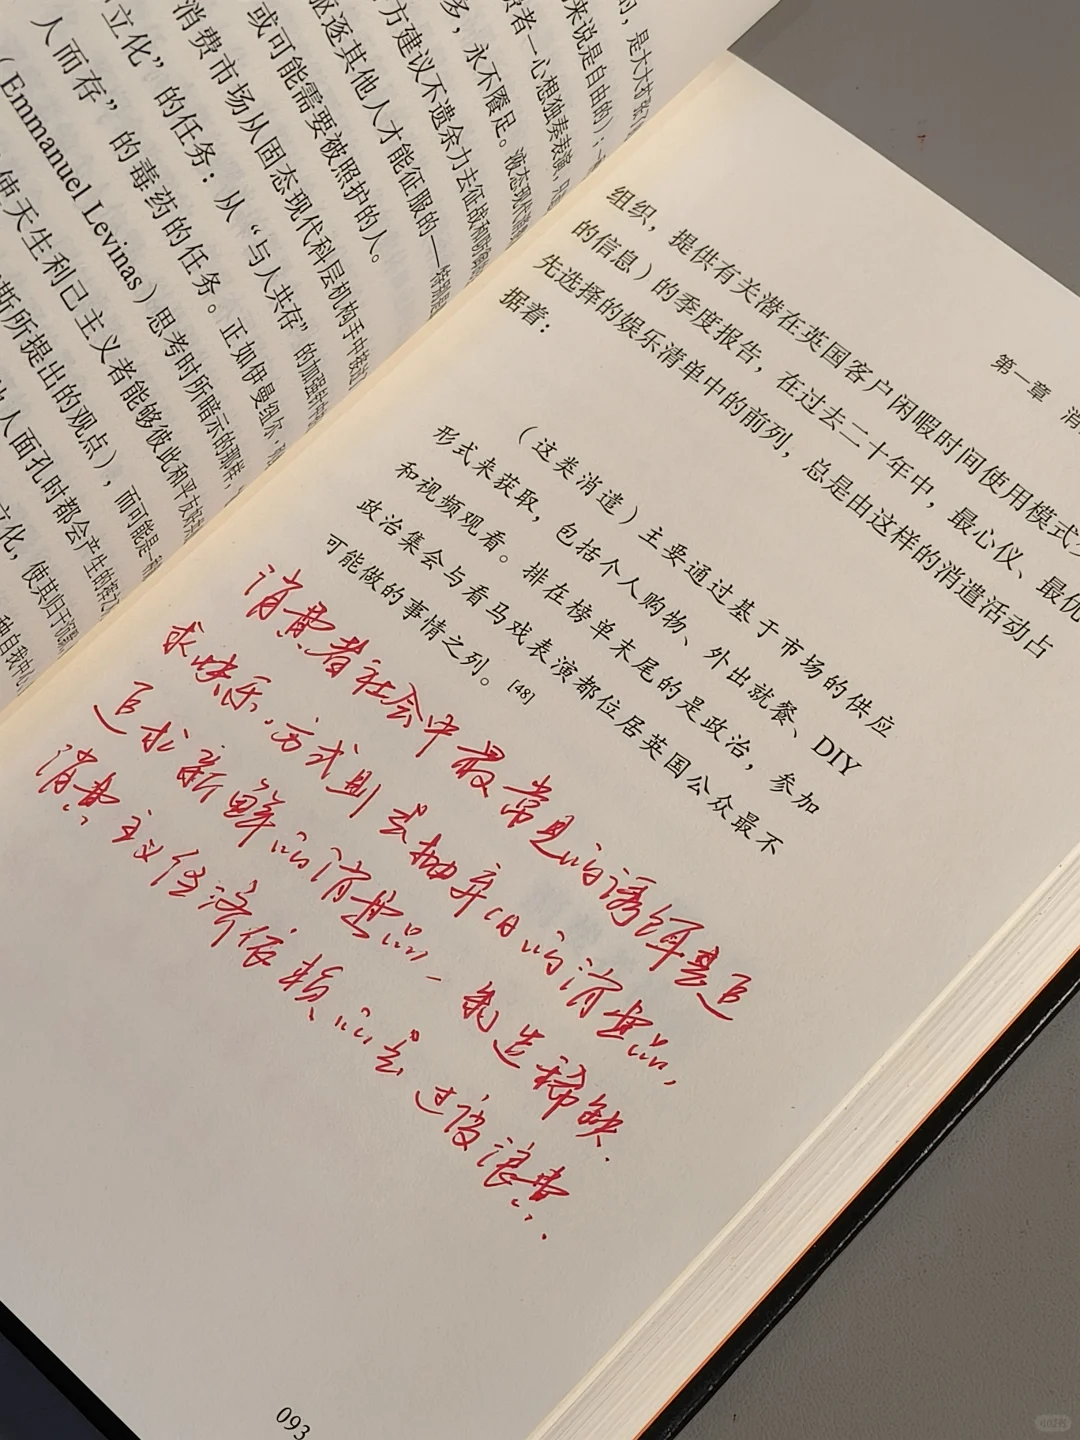 的，是大
来说是自由的）；
者一心想独奏表演，
多，永不餍足。液态现代
方建议不遗余力去征战和
驱逐其他人才能征服的一
或可能需要被照护的人。
消费市场从固态现代科层机构手中
立化”的任务：从“与人共存”的
人而存”的毒药的任务。正如伊曼纽尔·
（Emmanuel Levinas）思考时所暗示的那样，
使天生利己主义者能够彼此和平友好
斯所提出的观点），而可能是一种
人面孔时都会产生的
化，使其归于沉寂
种自我中心
第一章 消
组织，提供有关潜在英国客户闲暇时间使用模式
的信息）的季度报告，在过去二十年中，最心仪、最优
先选择的娱乐清单中的前列，总是由这样的消遣活动占
据着：
（这类消遣）主要通过基于市场的供应
形式来获取，包括个人购物、外出就餐、DIY
和视频观看。排在榜单末尾的是政治，参加
政治集会与看马戏表演都位居英国公众最不
可能做的事情之列。[48]
消费者社会中最常见的诱饵是追
求快乐。方式则是抽弃旧的消费品，
追求新鲜的消费品－制造稀缺.
消费主义经济依赖的是过度浪费.
093
小红书